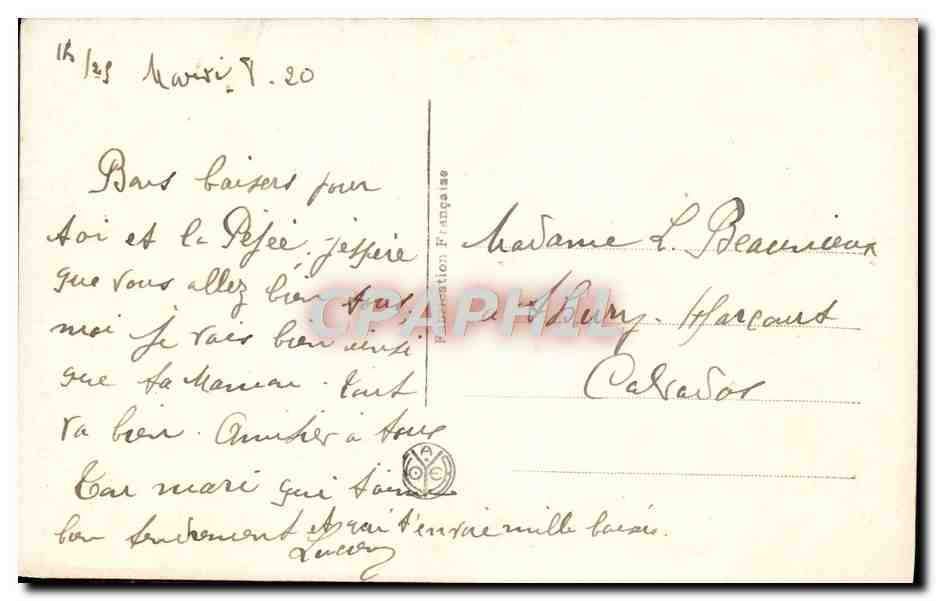 Mardi 8.20
Bons baisers pour
toi et la Pépée, j'espère
que vous allez bien tous,
moi je vais bien ainsi
que ta Maman. Tout
va bien. Amitiés à tous
Ton mari qui t'aime
bien tendrement et qui t'envoie mille baisers.
Lucien
Fabrication Française
Madame L. Beaunieux
a Thury-Harcourt
Calvados
CPAPHIL